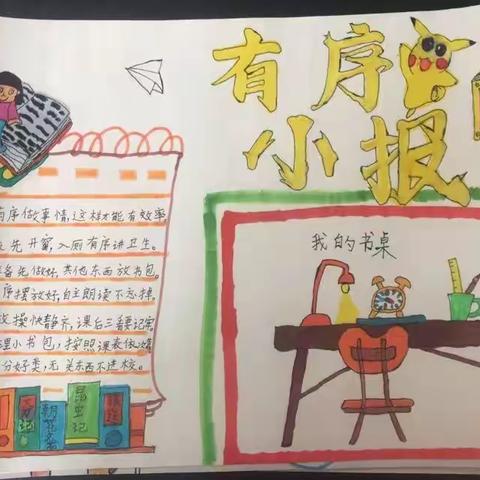 有序
小报
有序做事情,这样才能有效率,
先开窗,入厕有序讲卫生。
备先做好,其他东西放书包。
序摆放好,自主朗读不忘掉。
放操快静齐,课后三看要记牢
理小书包,按照课表做
分好类,无关东西不进校。
昆虫记
我的书桌